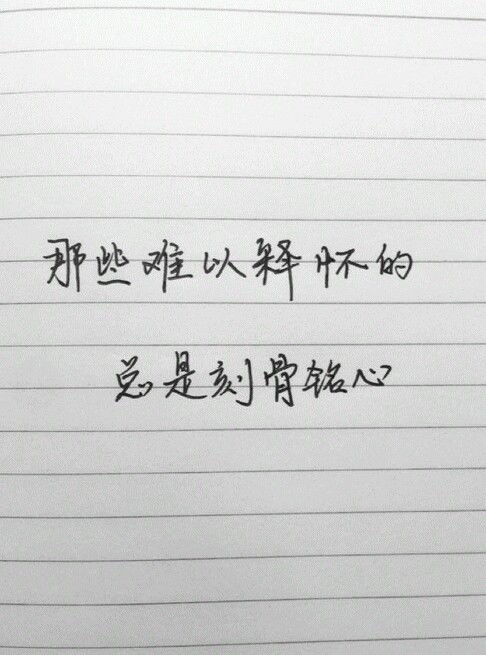 那些难以释怀的
总是刻骨铭心